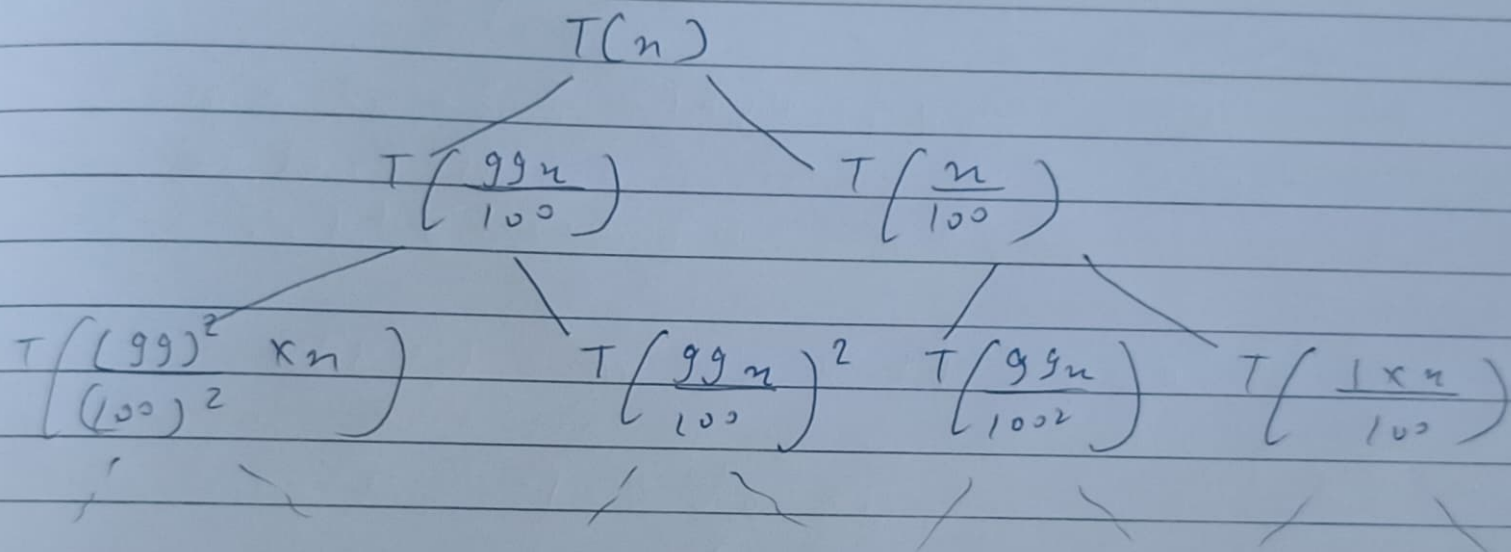 T(n)
T(99n/100) T(n/100)
T((99)²/(100)² × n) T(99n/100)² T(99n/100²) T(1×n/100)